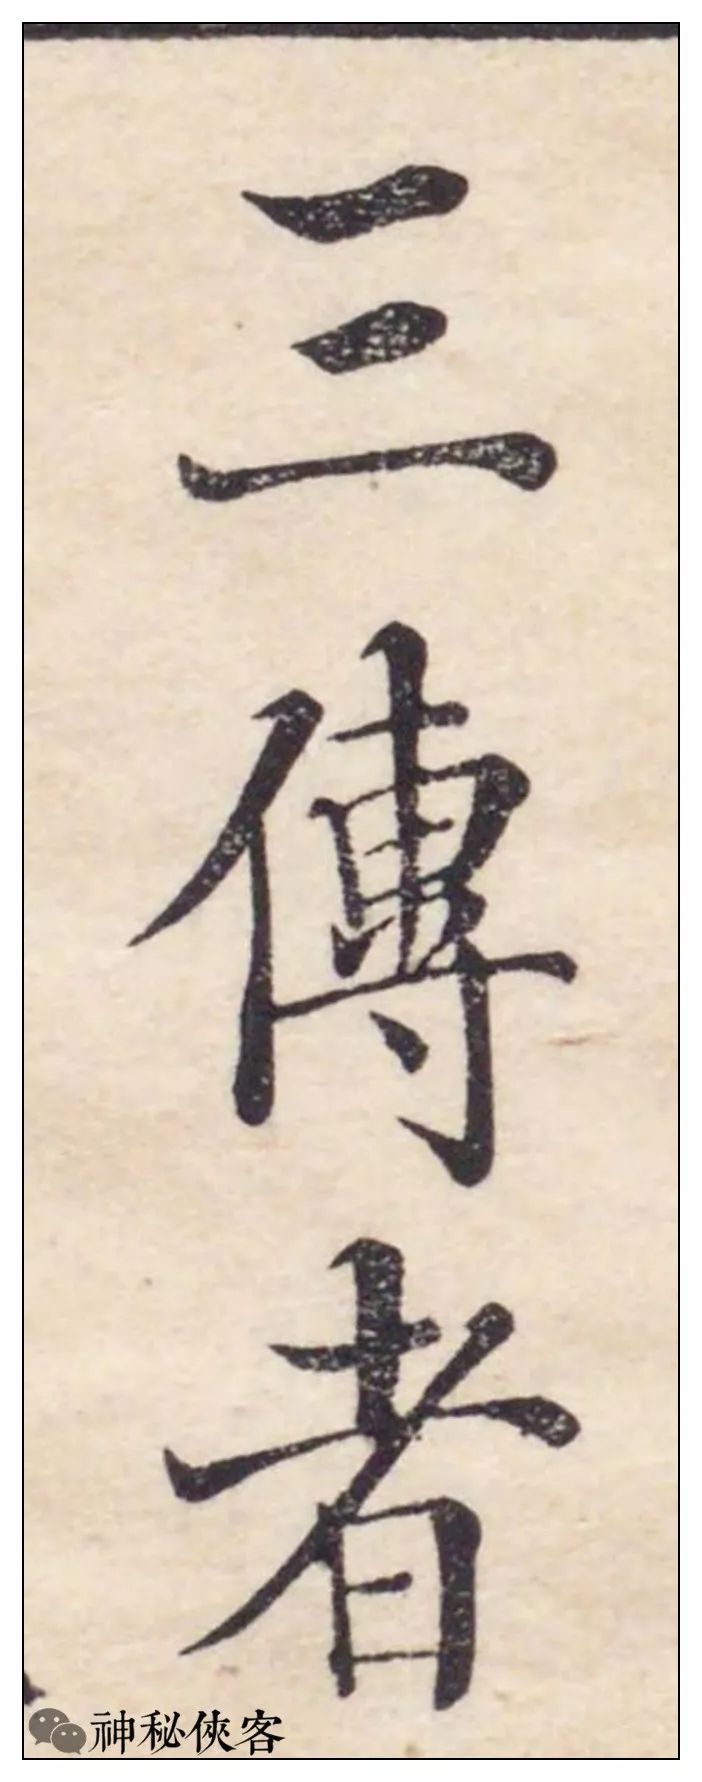 三傳者
神秘俠客